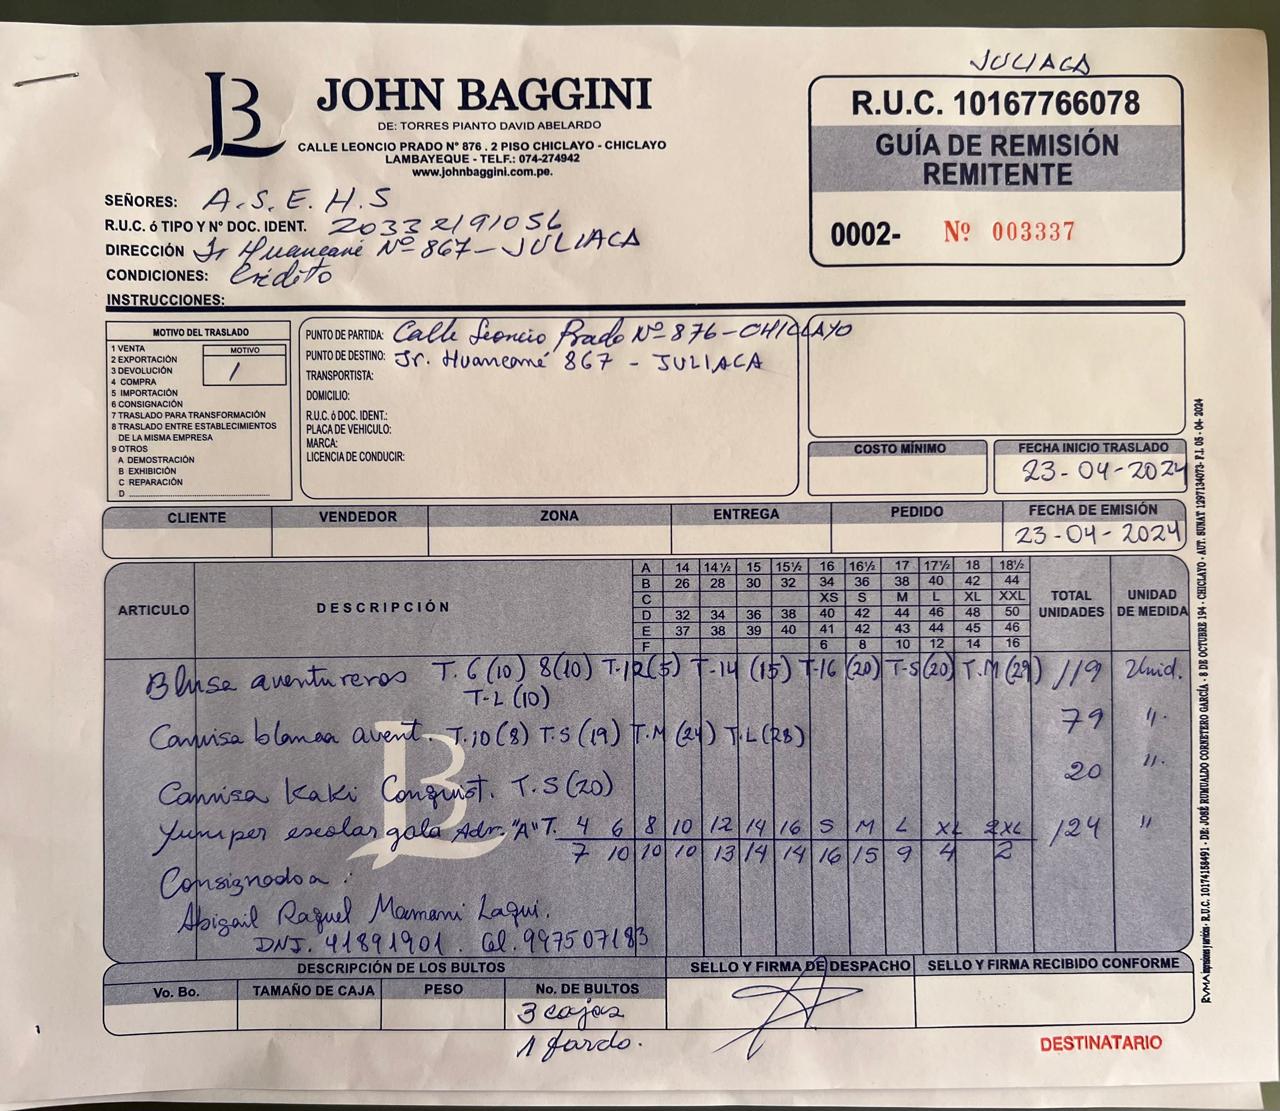 JULIACA
JB
JOHN BAGGINI
DE: TORRES PIANTO DAVID ABELARDO
CALLE LEONCIO PRADO Nº 876 . 2 PISO CHICLAYO - CHICLAYO
LAMBAYEQUE - TELF.: 074-274942
www.johnbaggini.com.pe.
R.U.C. 10167766078
GUÍA DE REMISIÓN
REMITENTE
0002- Nº 003337
SEÑORES: A.S.E.H.S
R.U.C. ó TIPO Y Nº DOC. IDENT. 20332191056
DIRECCIÓN Jr Huancané Nº 867 - JULIACA
CONDICIONES: Crédito
INSTRUCCIONES:
MOTIVO DEL TRASLADO
MOTIVO
1
1 VENTA
2 EXPORTACIÓN
3 DEVOLUCIÓN
4 COMPRA
5 IMPORTACIÓN
6 CONSIGNACIÓN
7 TRASLADO PARA TRANSFORMACIÓN
8 TRASLADO ENTRE ESTABLECIMIENTOS
DE LA MISMA EMPRESA
9 OTROS
A DEMOSTRACIÓN
B EXHIBICIÓN
C REPARACIÓN
D
PUNTO DE PARTIDA: Calle Leoncio Prado Nº 876 - CHICLAYO
PUNTO DE DESTINO: Jr. Huancané 867 - JULIACA
TRANSPORTISTA:
DOMICILIO:
R.U.C. ó DOC. IDENT.:
PLACA DE VEHICULO:
MARCA:
LICENCIA DE CONDUCIR:
COSTO MÍNIMO
FECHA INICIO TRASLADO
23-04-2024
CLIENTE VENDEDOR ZONA ENTREGA PEDIDO FECHA DE EMISIÓN
23-04-2024
ARTICULO DESCRIPCIÓN TOTAL UNIDADES UNIDAD DE MEDIDA
A 14 14½ 15 15½ 16 16½ 17 17½ 18 18½
B 26 28 30 32 34 36 38 40 42 44
C XS S M L XL XXL
D 32 34 36 38 40 42 44 46 48 50
E 37 38 39 40 41 42 43 44 45 46
F 6 8 10 12 14 16
Blusa aventureros T.6(10) 8(10) T-12(5) T-14 (15) T-16 (20) T-S(20) T.M(29) 119 Unid.
T-L (10)
Camisa blanca avent. T.10(8) T.S(19) T.M(24) T.L(28) 79 "
Camisa Kaki Conquist. T.S(20) 20 "
Yumper escolar gala Adv. "A" T. 4 6 8 10 12 14 16 S M L XL 2XL 124 "
7 10 10 10 13 14 14 16 15 9 4 2
Consignado a :
Abigail Raquel Mamani Laqui.
DNI. 41891901 . Cel. 997507183
DESCRIPCIÓN DE LOS BULTOS
Vo. Bo. TAMAÑO DE CAJA PESO No. DE BULTOS
3 cajas
1 fardo.
SELLO Y FIRMA DE DESPACHO
SELLO Y FIRMA RECIBIDO CONFORME
DESTINATARIO